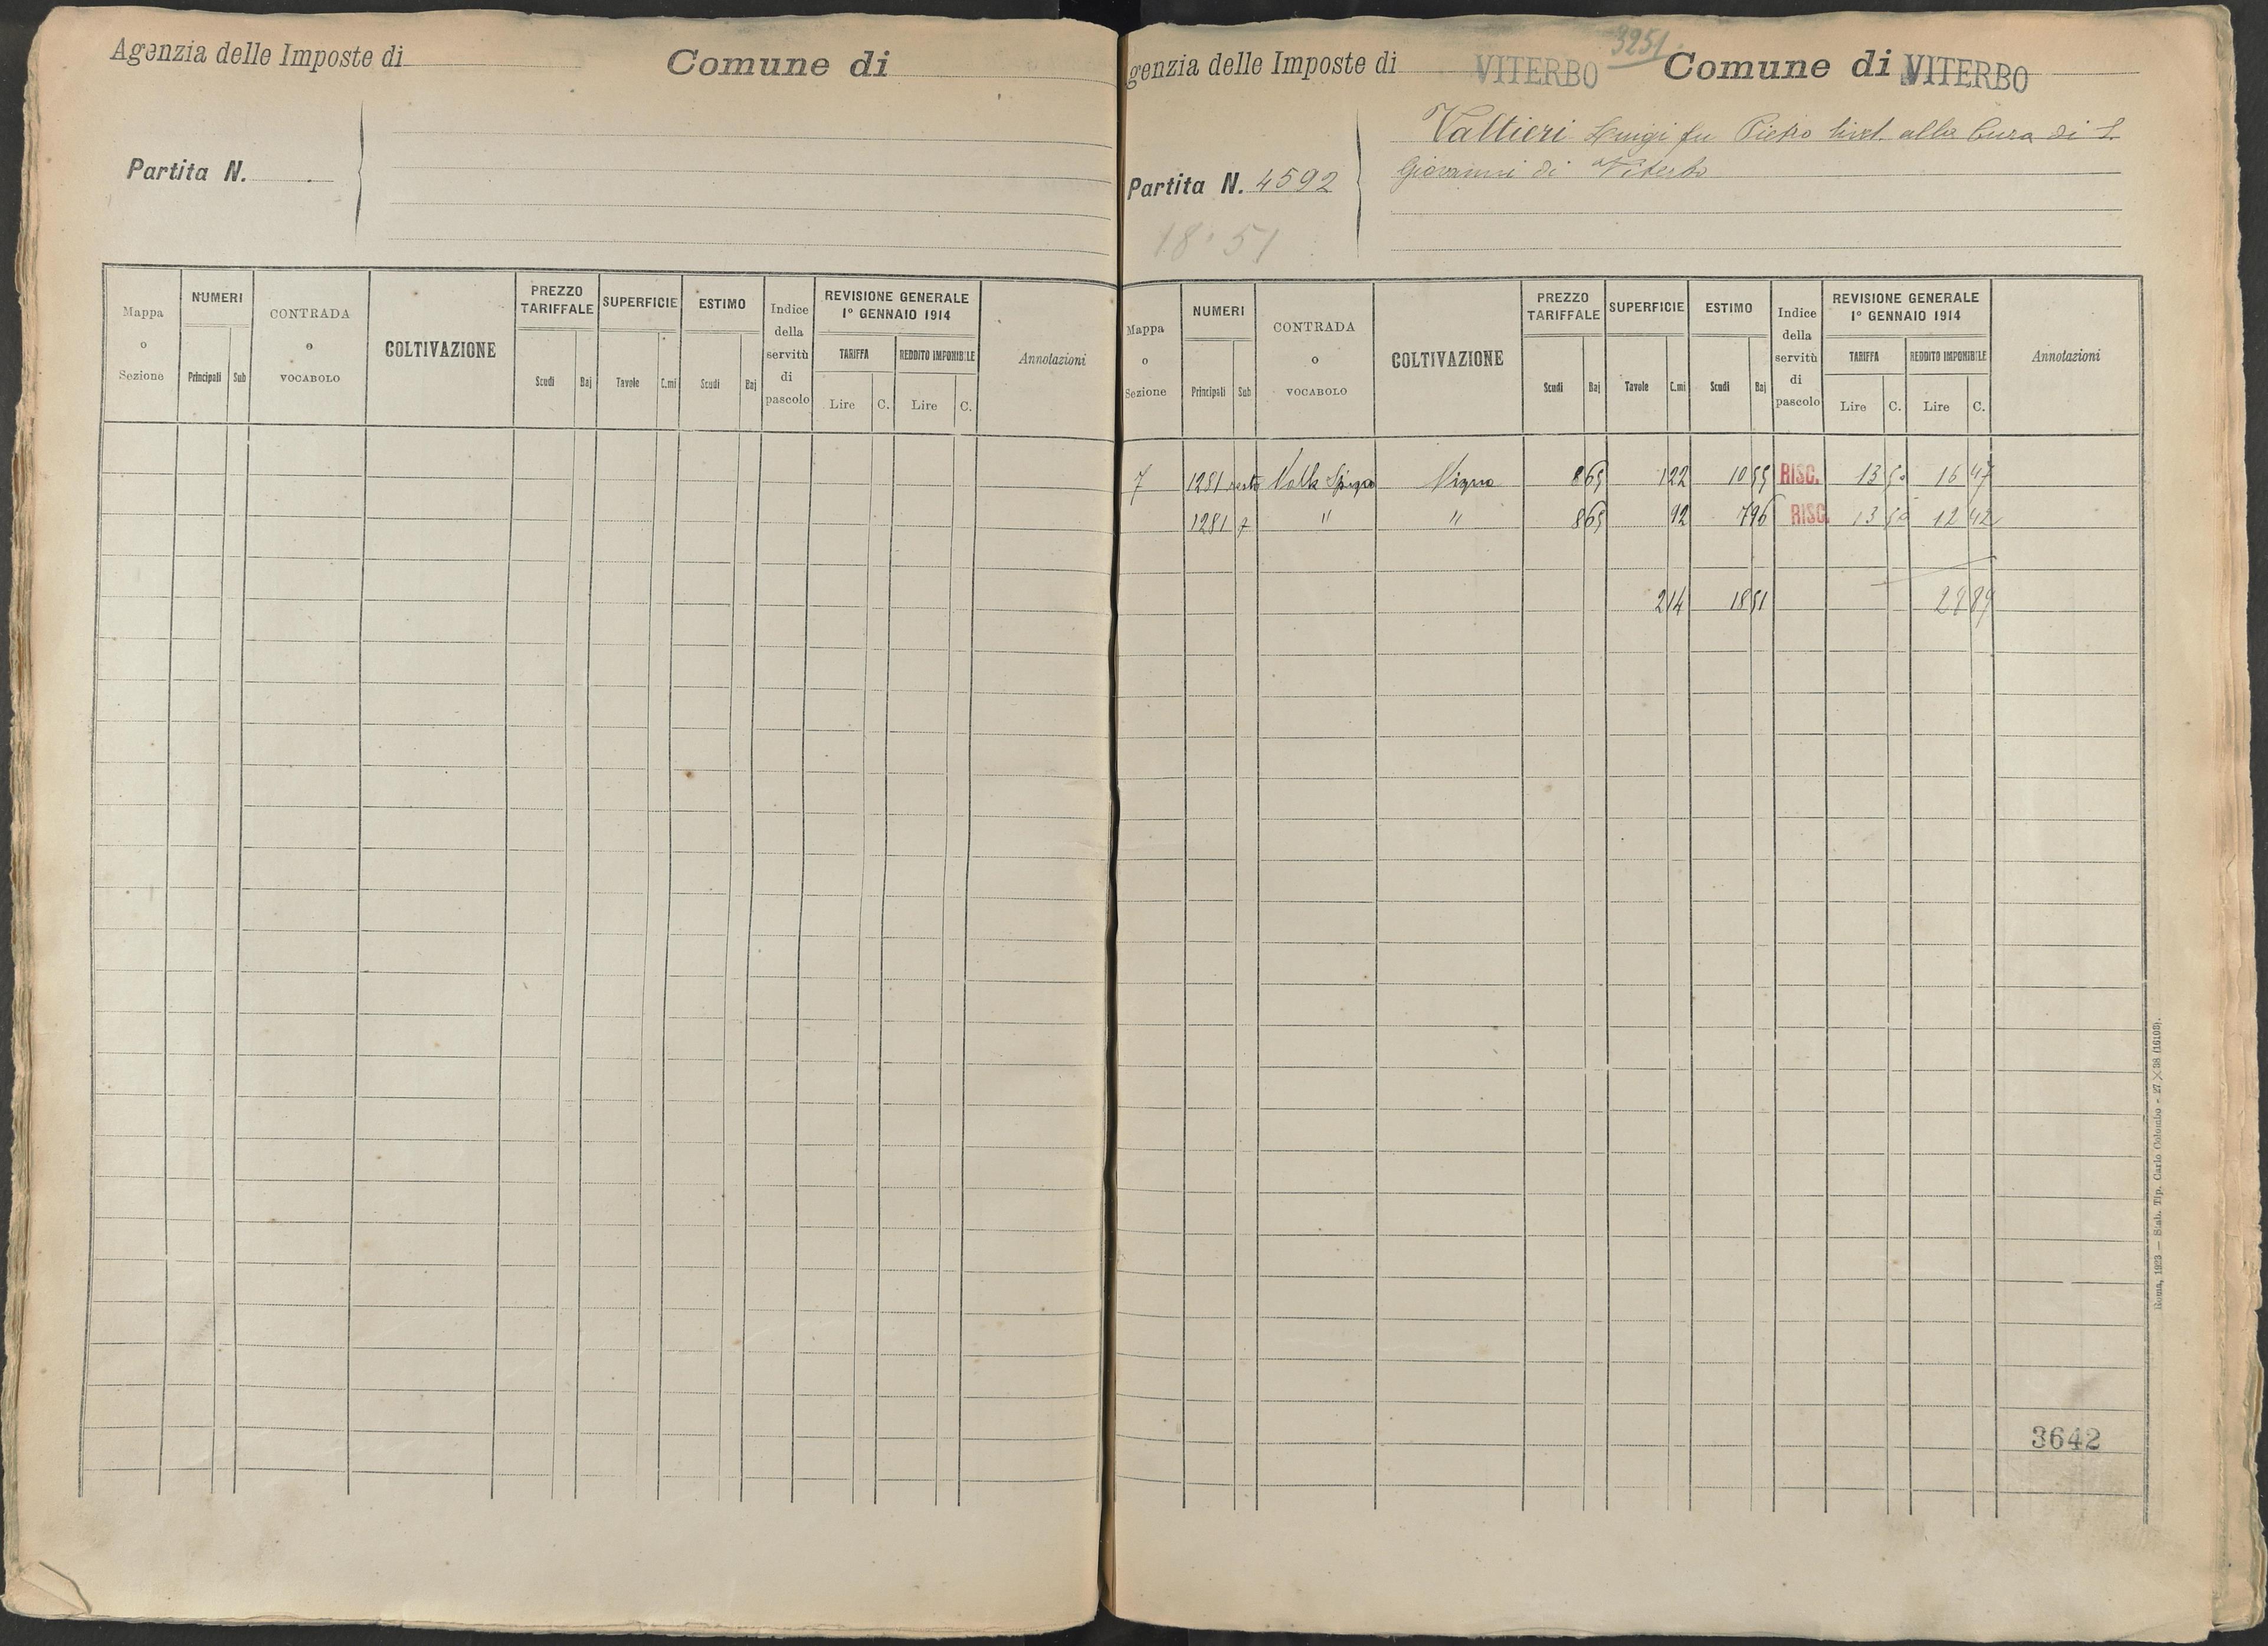 Agenzia delle Imposte di
Comune di
Partita N.
Mappa o Sezione
NUMERI
Principali
Sub
CONTRADA o VOCABOLO
COLTIVAZIONE
PREZZO TARIFFALE
Scudi
Baj
SUPERFICIE
Tavole
C.mi
ESTIMO
Scudi
Baj
Indice della servitù di pascolo
REVISIONE GENERALE
1º GENNAIO 1914
TARIFFA
REDDITO IMPONIBILE
Lire
C.
Lire
C.
Annotazioni
3251
genzia delle Imposte di VITERBO
Comune di VITERBO
Valtieri Luigi fu Pietro livel. alla Cura di S.
Giovanni di Viterbo
Partita N. 4592
18.51
Mappa o Sezione
NUMERI
Principali
Sub
CONTRADA o VOCABOLO
COLTIVAZIONE
PREZZO TARIFFALE
Scudi
Baj
SUPERFICIE
Tavole
C.mi
ESTIMO
Scudi
Baj
Indice della servitù di pascolo
REVISIONE GENERALE
1º GENNAIO 1914
TARIFFA
REDDITO IMPONIBILE
Lire
C.
Lire
C.
Annotazioni
7 1281 resto Valle Spina Vigna 8 65 1 22 10 55 RISC. 13 50 16 47
1281 7 " " 8 65 92 7 96 RISC. 13 50 12 42
2 14 18 51 28 89
3642
Roma, 1923 — Stab. Tip. Carlo Colombo - 27 × 38 (16108).